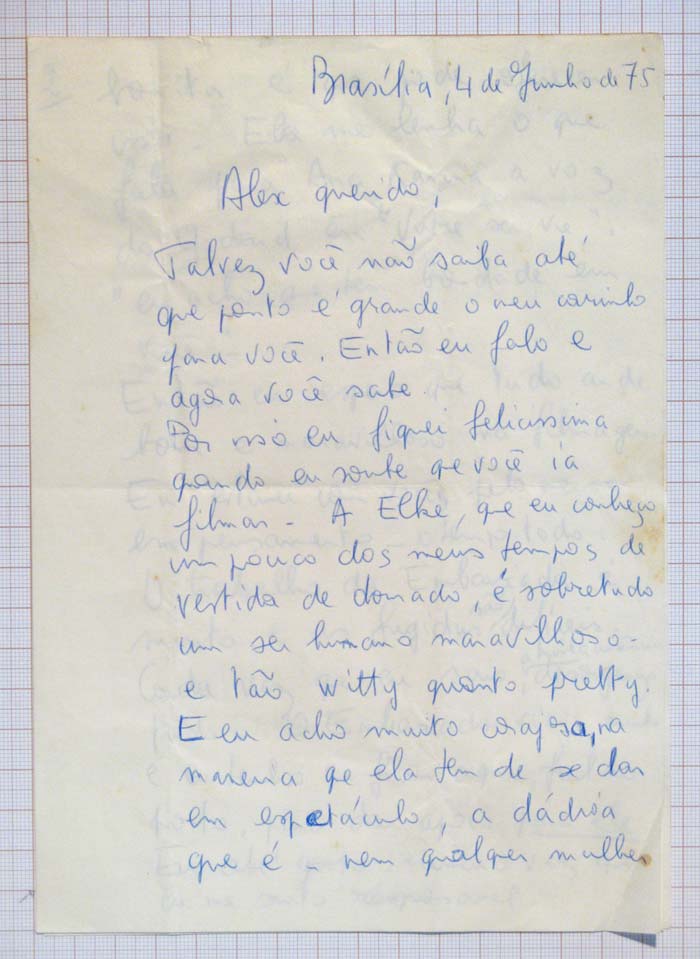 Brasília, 4 de Junho de 75
Alex querido,
Talvez você não saiba até
que ponto é grande o meu carinho
para você. Então eu falo e
agora você sabe.
Por isso eu fiquei felicissima
quando eu soube que você ia
filmar - A Elke, que eu conheço
um pouco dos meus tempos de
vestida de dourado, é sobretudo
um ser humano maravilhoso -
e tão witty quanto pretty.
E eu acho muito corajosa, na
maneira que ela tem de se dar
em espetáculo, a dádiva
que é - nem qualquer mulher